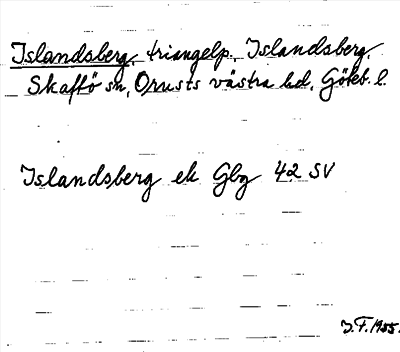 Islandsberg, triangelp. Islandsberg,
Skaftö sn, Orusts västra hd, Göteb. l.
Islandsberg ek Gbg 42 SV
J.F. 1955.